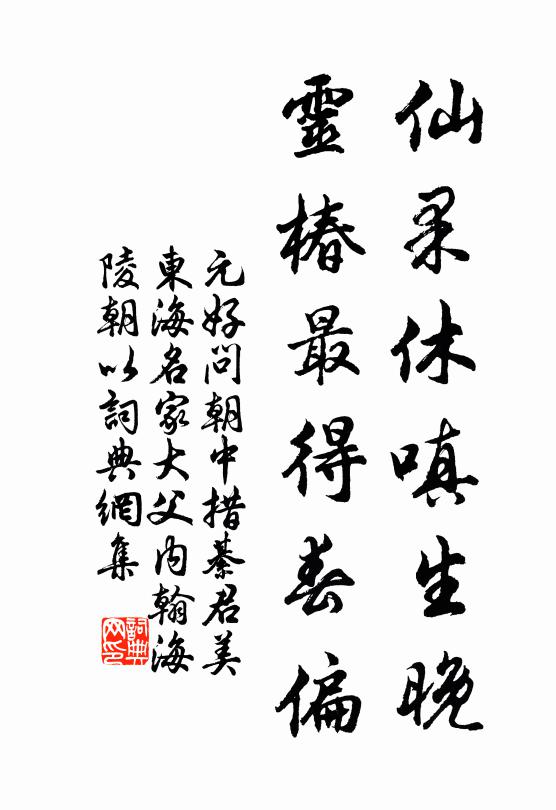 仙果休嗔生晚
靈椿最得春偏
元好問朝中措綦君美
東海名家大父内翰海
陵朝以詞典網集
詞典网印